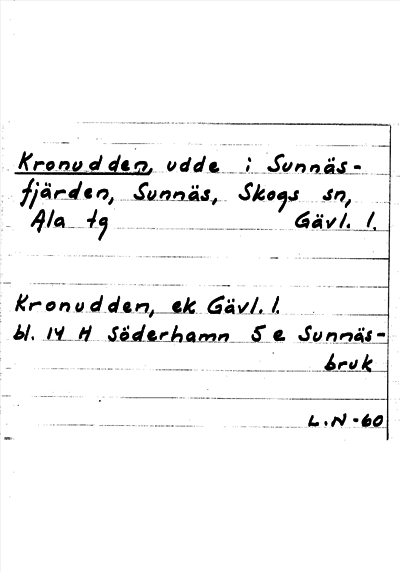 Kronudden, udde i Sunnäs-
fjärden, Sunnäs, Skogs sn,
Ala tg Gävl. l.
Kronudden, ek Gävl. l.
bl. 14 H Söderhamn 5 e Sunnäs-
bruk
L.N-60